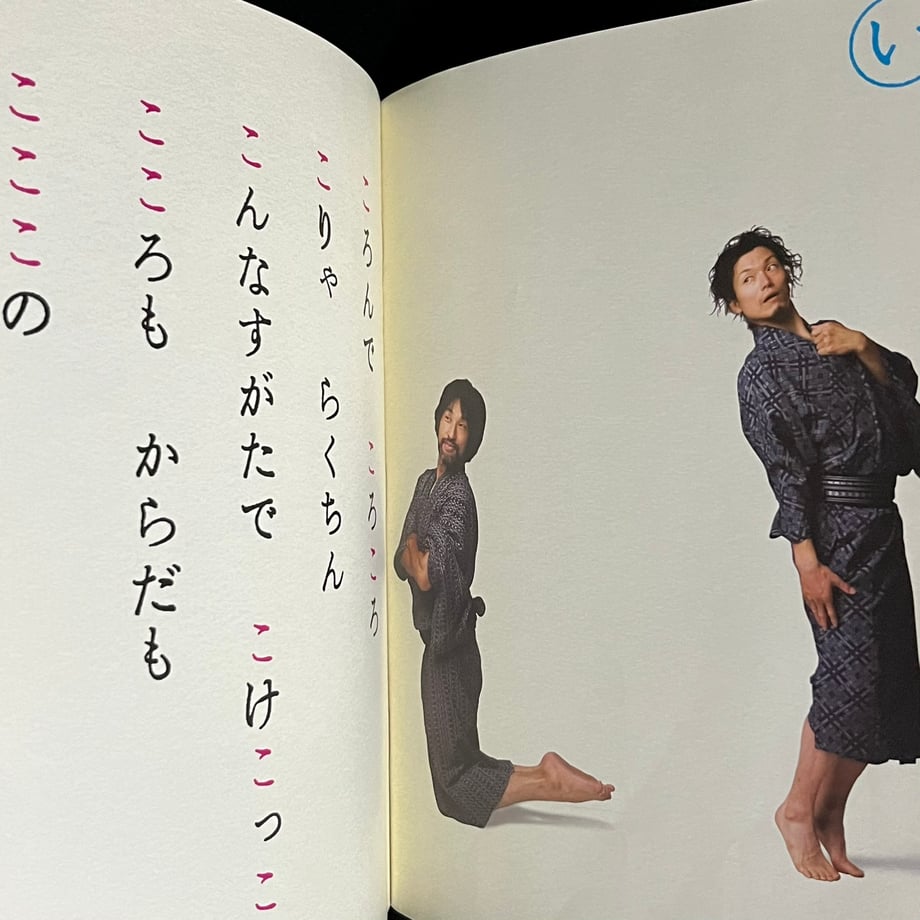 ころんで　ころころ
こりゃ　らくちん
こんなすがたで　こけこっこ
こころも　からだも
こここの